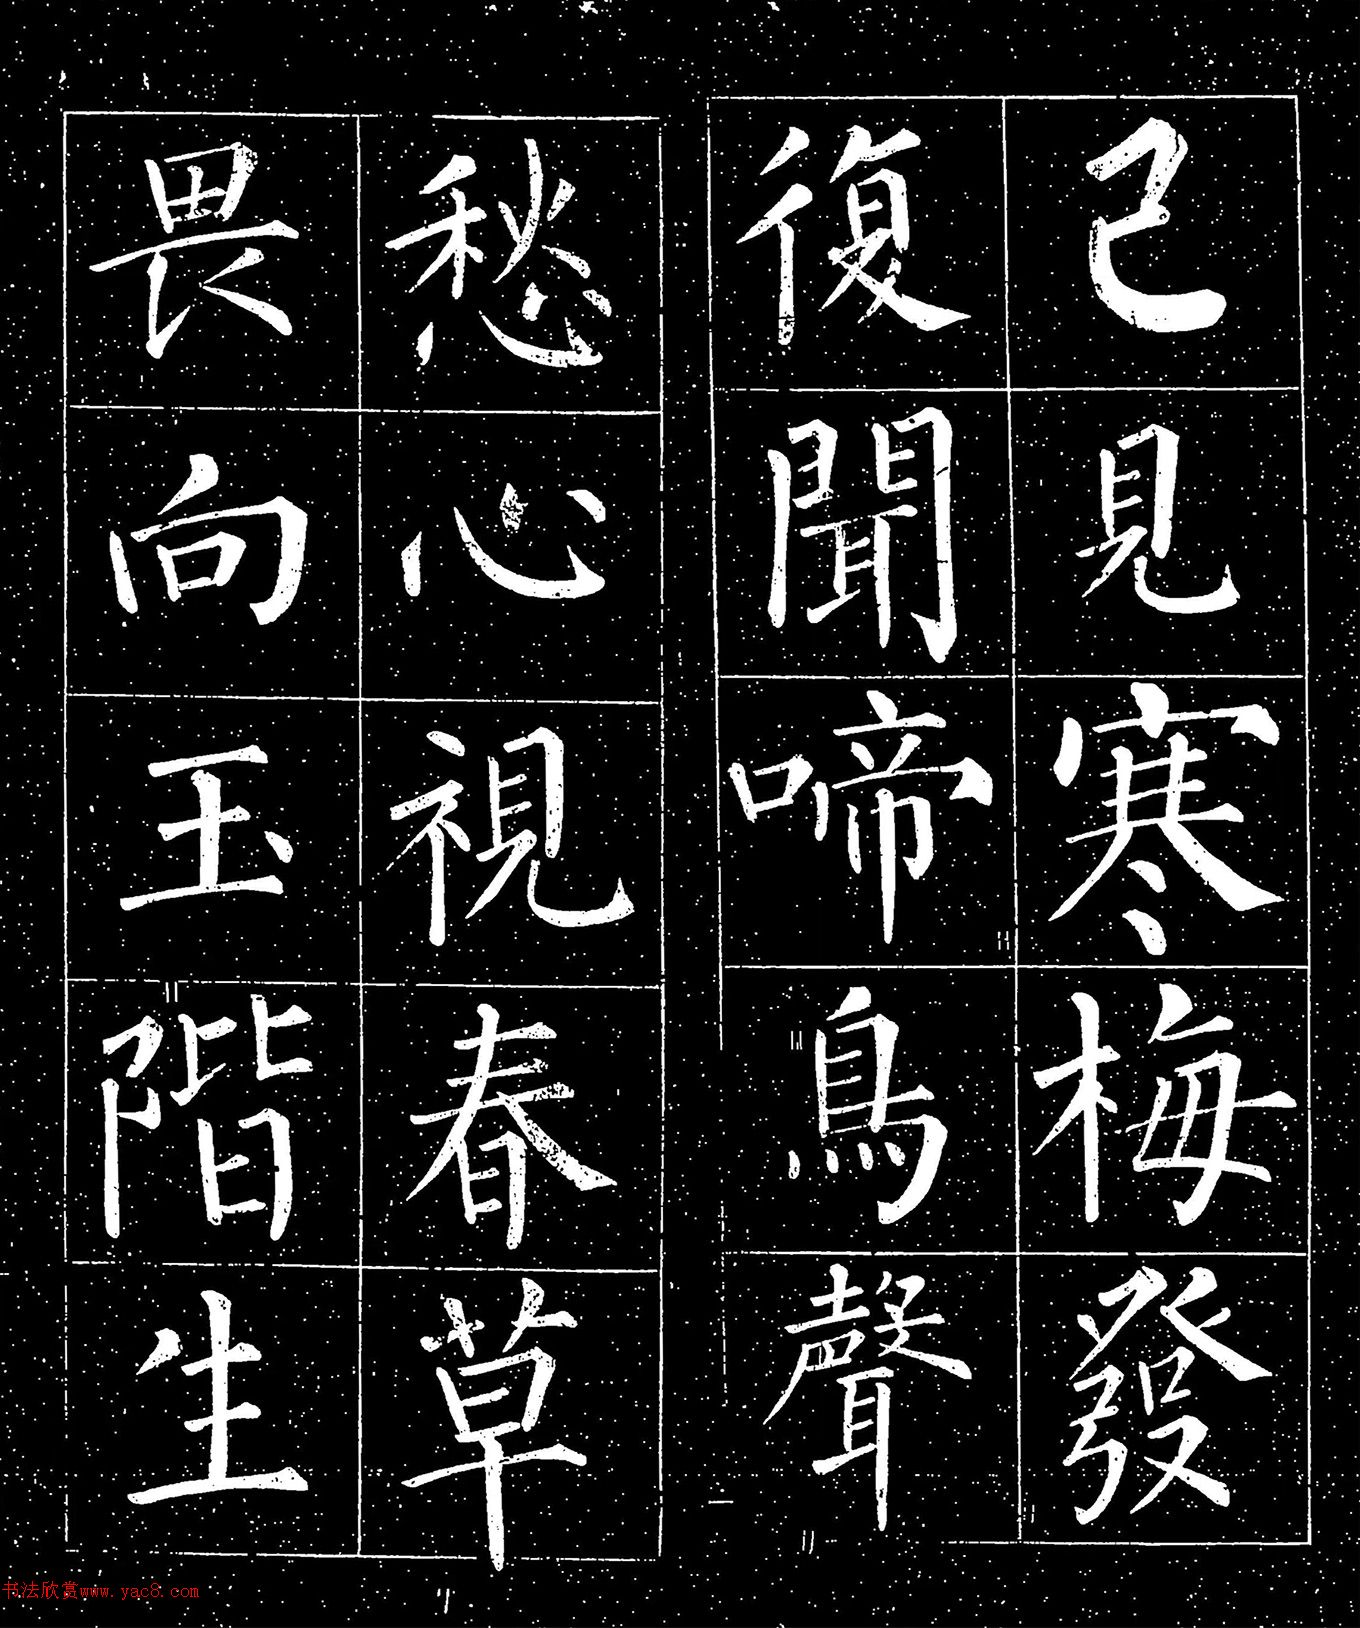 已見寒梅發
復聞啼鳥聲
愁心視春草
畏向玉階生
书法欣赏www.yac8.com